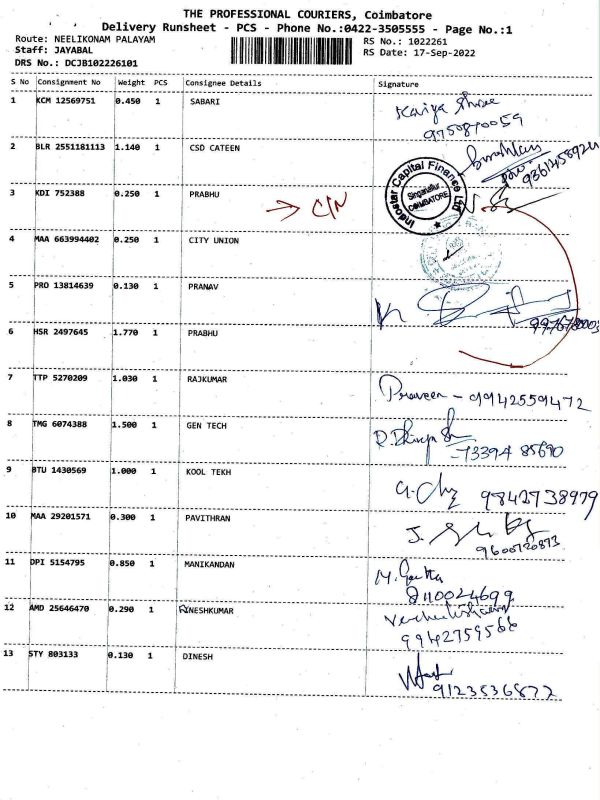 THE PROFESSIONAL COURIERS, Coimbatore
Delivery Runsheet - PCS - Phone No.:0422-3505555 - Page No.:1
Route: NEELIKONAM PALAYAM
Staff: JAYABAL
DRS No.: DCJB102226101
RS No.: 1022261
RS Date: 17-Sep-2022
S No Consignment No Weight PCS Consignee Details Signature
1 KCM 12569751 0.450 1 SABARI
9750870059
2 BLR 2551181113 1.140 1 CSD CATEEN
Indostar Capital Finance Ltd
Singanallur
COIMBATORE
3 KDI 752388 0.250 1 PRABHU
→ C/N
4 MAA 663994402 0.250 1 CITY UNION
5 PRO 13814639 0.130 1 PRANAV
6 HSR 2497645 1.770 1 PRABHU
7 TTP 5270209 1.030 1 RAJKUMAR
Praveen - 9942559472
8 TMG 6074388 1.500 1 GEN TECH
73394 85690
9 BTU 1430569 1.000 1 KOOL TEKH
9842738979
10 MAA 29201571 0.300 1 PAVITHRAN
9600720873
11 DPI 5154795 0.850 1 MANIKANDAN
M. Geetha
8110024699
12 AMD 25646470 0.290 1 DINESHKUMAR
9942759566
13 STY 803133 0.130 1 DINESH
9123536877